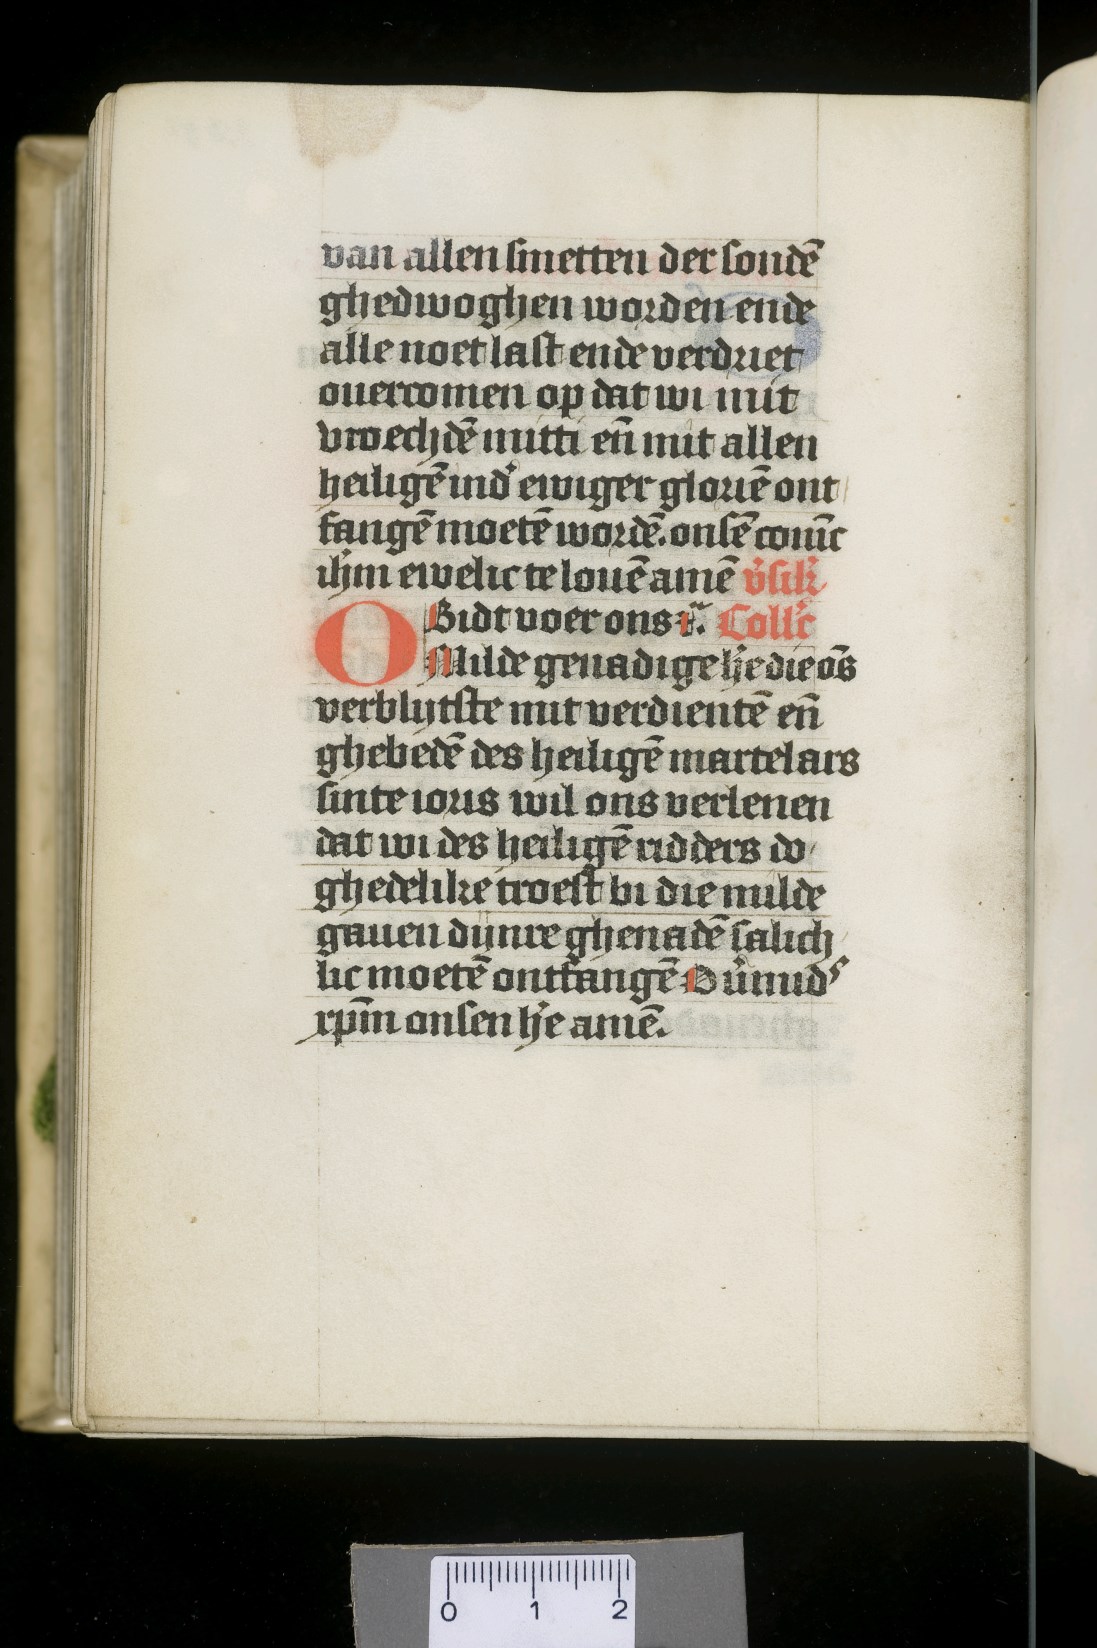 van allen smetten der sondē
ghedwoghen worden ende
alle noet last ende verdriet
ouercomen op dat wi mit
vroechdē mitti eñ mit allen
heiligē ind' ewiger gloriē ont
fangē moetē wordē. onsē conīc
ihm̄ ewelic te louē amē v̓sik̓
Bidt voer ons Coll'c
O Milde genadige h̓e die ōs
verblijtste mit verdientē eñ
ghebedē des heiligē martelars
sinte ioris wil ons verlenen
dat wi des heiligē ridders do
ghedelike troest bi die milde
gauen dijnre ghenadē salich
lic moetē ontfangē Ou̓mids
xpm̄ onsen h̓e amē.
0 1 2